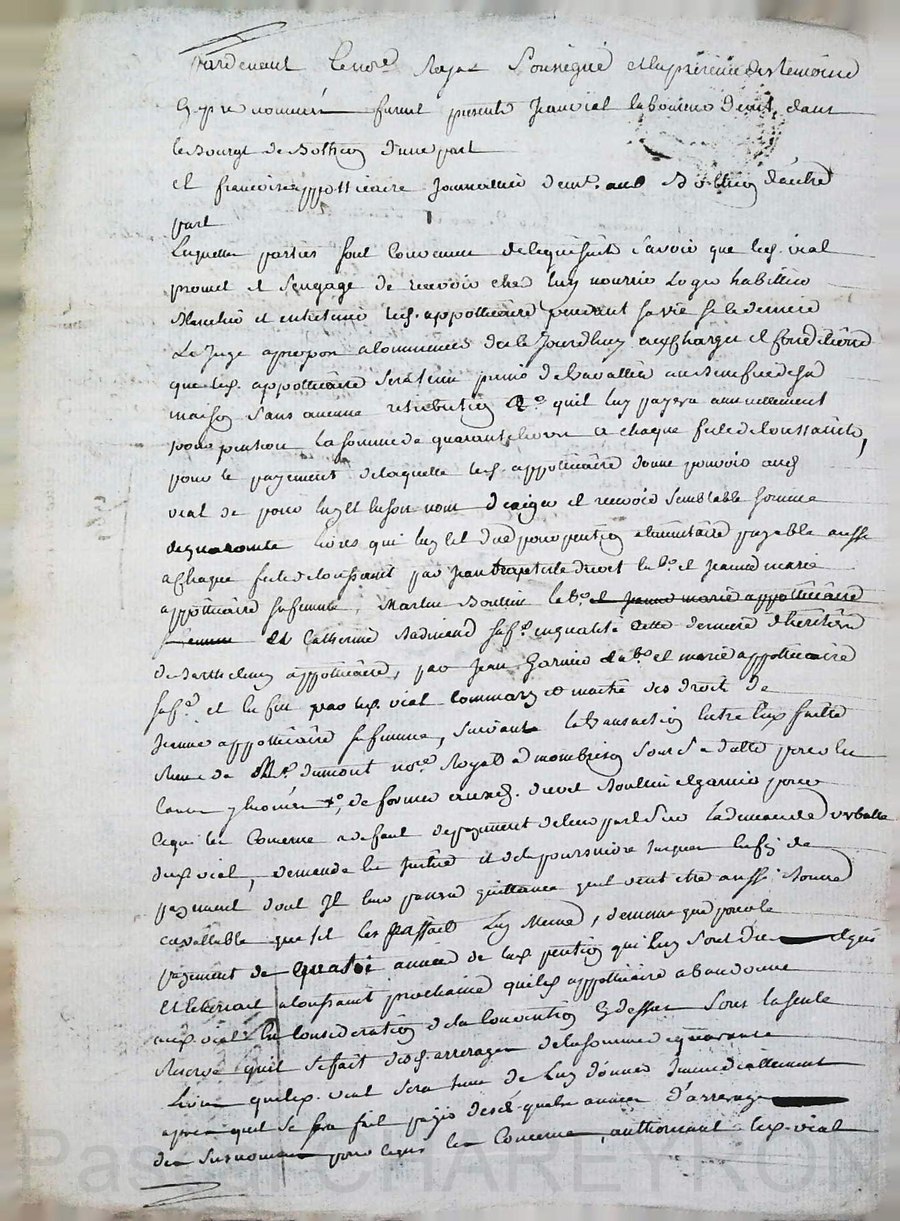 Pardevant le no.re Royal Soussigné et en présence des temoins
Cy apre nommés furent présents Jean vial laboureur demt. dans
le Bourg de Bothéon d'une part
et françois appotticaire Journallier demt. aud Bothéon d'autre
part
Lesquelles parties sont convenue de ce qui suit savoir que led. vial
promet et s'engage de recevoir chez luy nourrir Loger habillier
Blanchir et entretenir led. appotticaire pendant sa vie
Le Juge apropos a commencer de ce Jourdhuy aux charges et conditions
que led. appotticaire sera tenu de travallier au Benefice de sa
maison sans aucune retribution 2.o qu'il luy payera annuellement
pour pention la somme de quarante livres a chaque fete de toussaints,
pour le payement de laquelle led. appotticaire donne pouvoir aud
vial de pour luy et en son nom d'exiger et recevoir semblable somme
de quarante livres qui luy est due pour pention alimentaire payable aussi
a chaque fete de toussaint par Jean baptiste droit lab.r et Jeanne marie
appotticaire sa femme, Martin Boullin lab.r et Jeanne marie appotticaire
sa femme et Catherine sa f.e en qualité cette derniere d'heritiere
de Barthelemy appotticaire, par Jean Garnier lab.r et marie appotticaire
sa f.e et en fin par led. vial comme maitre des droits de
Jeanne appotticaire sa femme, suivant la transaction entre eux faitte
devant M.e dumont no.re Royal a montbrison sous sa datte pour les
de former auxd. droit Boullin et garnier pour
ce qui les concerne a defaut de payement de leur part sur la demande verballe
dud. vial, demande en Justice et de la poursuivre jusques en fin de
payement dont Il leur passera quittance qu'il veut etre aussi Bonne
et vallable que s'il les passait Luy Meme, de meme que pour le
payement de quatre année de lad. pention qui luy sont due
a toussaint prochaine que led. appotticaire abandonne
aud. vial en consideration de la convention Cy dessus sous la seule
reserve qu'il se fait desd. arrerages de la somme de quarante
Livres que led. vial sera tenu de luy donner Immediattement
apres qu'il se sera fait payer desd. quatre années d'arrerage
des susnommés pour ce qui les Concerne, authorisant led. vial
Pascal CHAREYRON